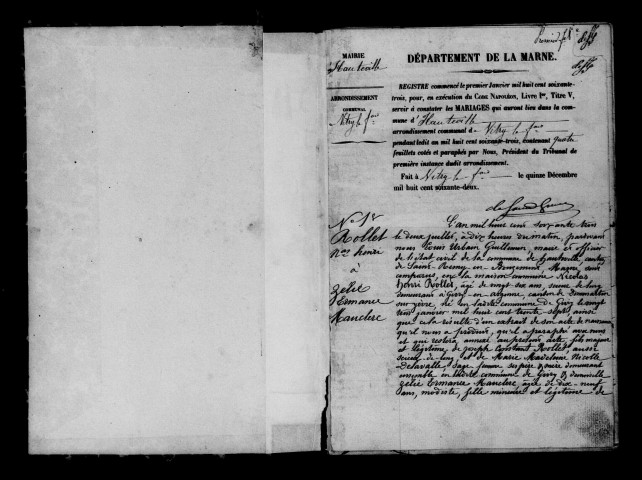 Premier fet
MAIRIE
d'Hauteville
ARRONDISSEMENT
COMMUNAL
Vitry le fois
DÉPARTEMENT DE LA MARNE.
REGISTRE commencé le premier Janvier mil huit cent soixante-
trois, pour, en exécution du CODE NAPOLÉON, Livre Ier, Titre V,
servir à constater les MARIAGES qui auront lieu dans la com-
mune d'Hauteville
arrondissement communal de Vitry le fois
pendant ledit an mil huit cent soixante-trois, contenant quatre
feuillets cotés et paraphés par Nous, Président du Tribunal de
première instance dudit arrondissement.
Fait à Vitry le fois le quinze Décembre
mil huit cent soixante-deux.
No 1er
Rollet
Nas henri
à
Zélie
Ermance
Mauclere
L'an mil huit cent soixante trois
le deux juillet, à dix heures du matin, pardevant
nous Louis Urbain Guillemin, maire et officier
de l'état civil de la commune de hauteville, canton
de Saint-Remy en Bouzemont, Marne, sont
comparus, en la maison commune Nicolas
henri Rollet, âgé de vingt-six ans, scieur de long
demeurant à Givry-en-Argonne, canton de Dommartin
sur-yèvre, né en ladite commune de Givry le vingt
trois janvier mil huit cent trente sept, ainsi
que cela résulte d'un extrait de son acte de naissance
qu'il nous a produit, qu'il a paraphé avec nous
et qui restera annexé au présent acte, fils majeur
et légitime de joseph Constant Rollet, aussi
scieur de long, et de Marie Madeleine Nicolle
Delavalle, sage femme, ses père et mère demeurant
ensemble en ladite commune de Givry & demoiselle
Zélie Ermance Mauclere, âgée de dix-neuf
ans, modiste, fille mineure et légitime de